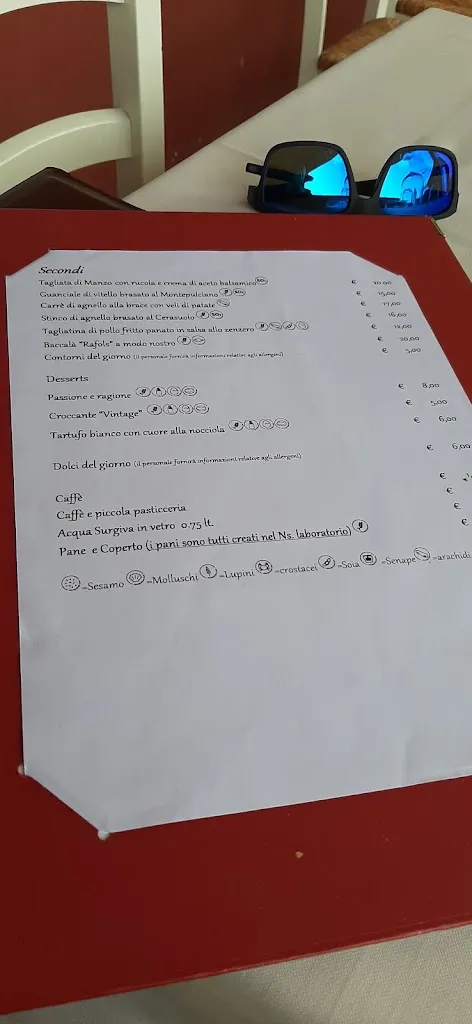 Secondi
Tagliata di Manzo con rucola e crema di aceto balsamico € 20,00
Guanciale di vitello brasato al Montepulciano € 15,00
Carrè di agnello alla brace con veli di patate € 17,00
Stinco di agnello brasato al Cerasuolo € 16,00
Tagliatina di pollo fritto panato in salsa allo zenzero € 12,00
Baccalà "Rafols" a modo nostro € 20,00
Contorni del giorno (il personale fornirà informazioni relative agli allergeni) € 5,00
Desserts
Passione e ragione € 8,00
Croccante "Vintage" € 5,00
Tartufo bianco con cuore alla nocciola € 6,00
Dolci del giorno (il personale fornirà informazioni relative agli allergeni) € 6,00
Caffè €
Caffè e piccola pasticceria €
Acqua Surgiva in vetro 0.75 lt. €
Pane e Coperto (i pani sono tutti creati nel Ns. laboratorio) €
=Sesamo =Molluschi =Lupini =crostacei =Soia =Senape =arachidi